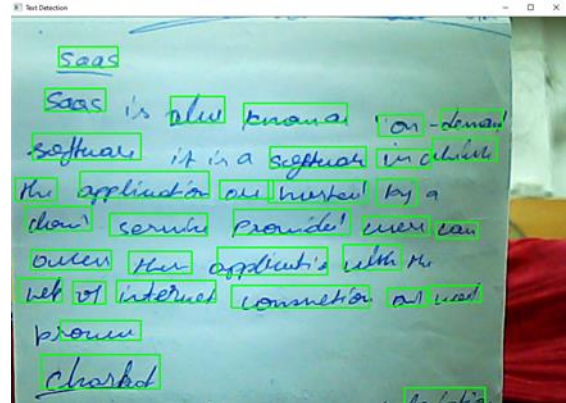 Text Detection
SaaS
SaaS is also known as "on-demand
software it is a software in which
the application are hosted by a
cloud service provider user can
access their application with the
help of internet connection and web
browser